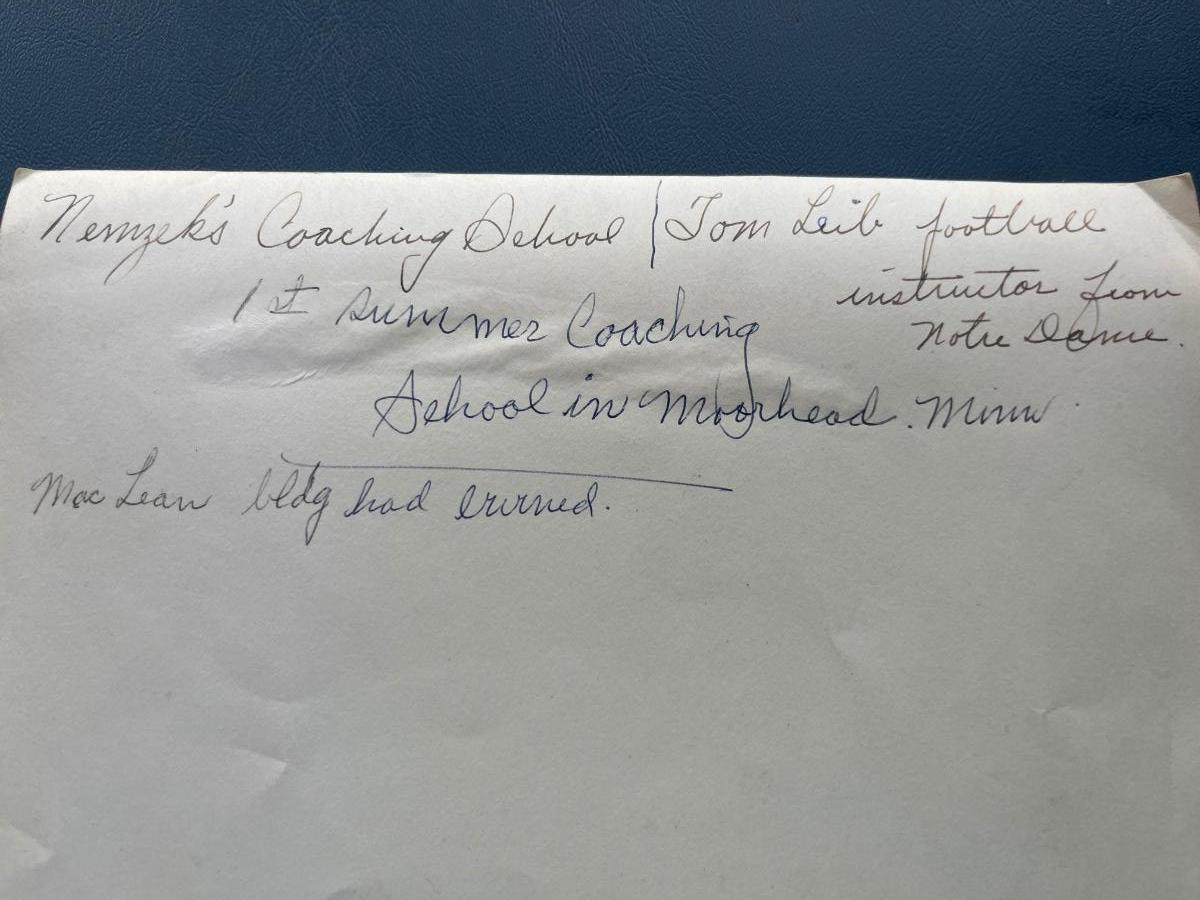 Nemzek's Coaching School | Tom Leib football
instructor from
Notre Dame.
1st summer Coaching
School in Moorhead. Minn
Mac Lean bldg had burned.